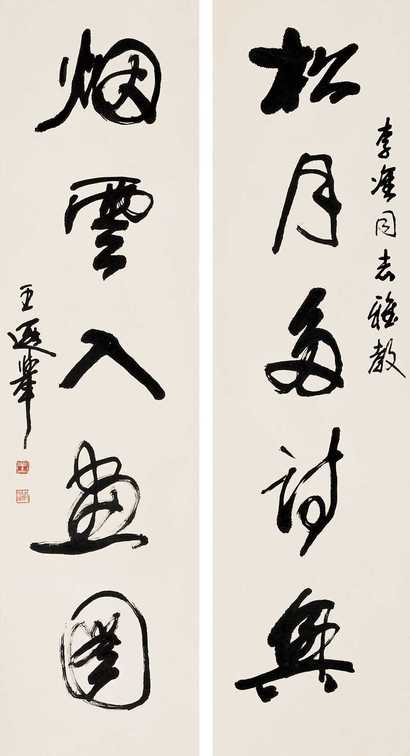 松月多詩興
李準同志雅教
烟雲入畫圖
王遐舉